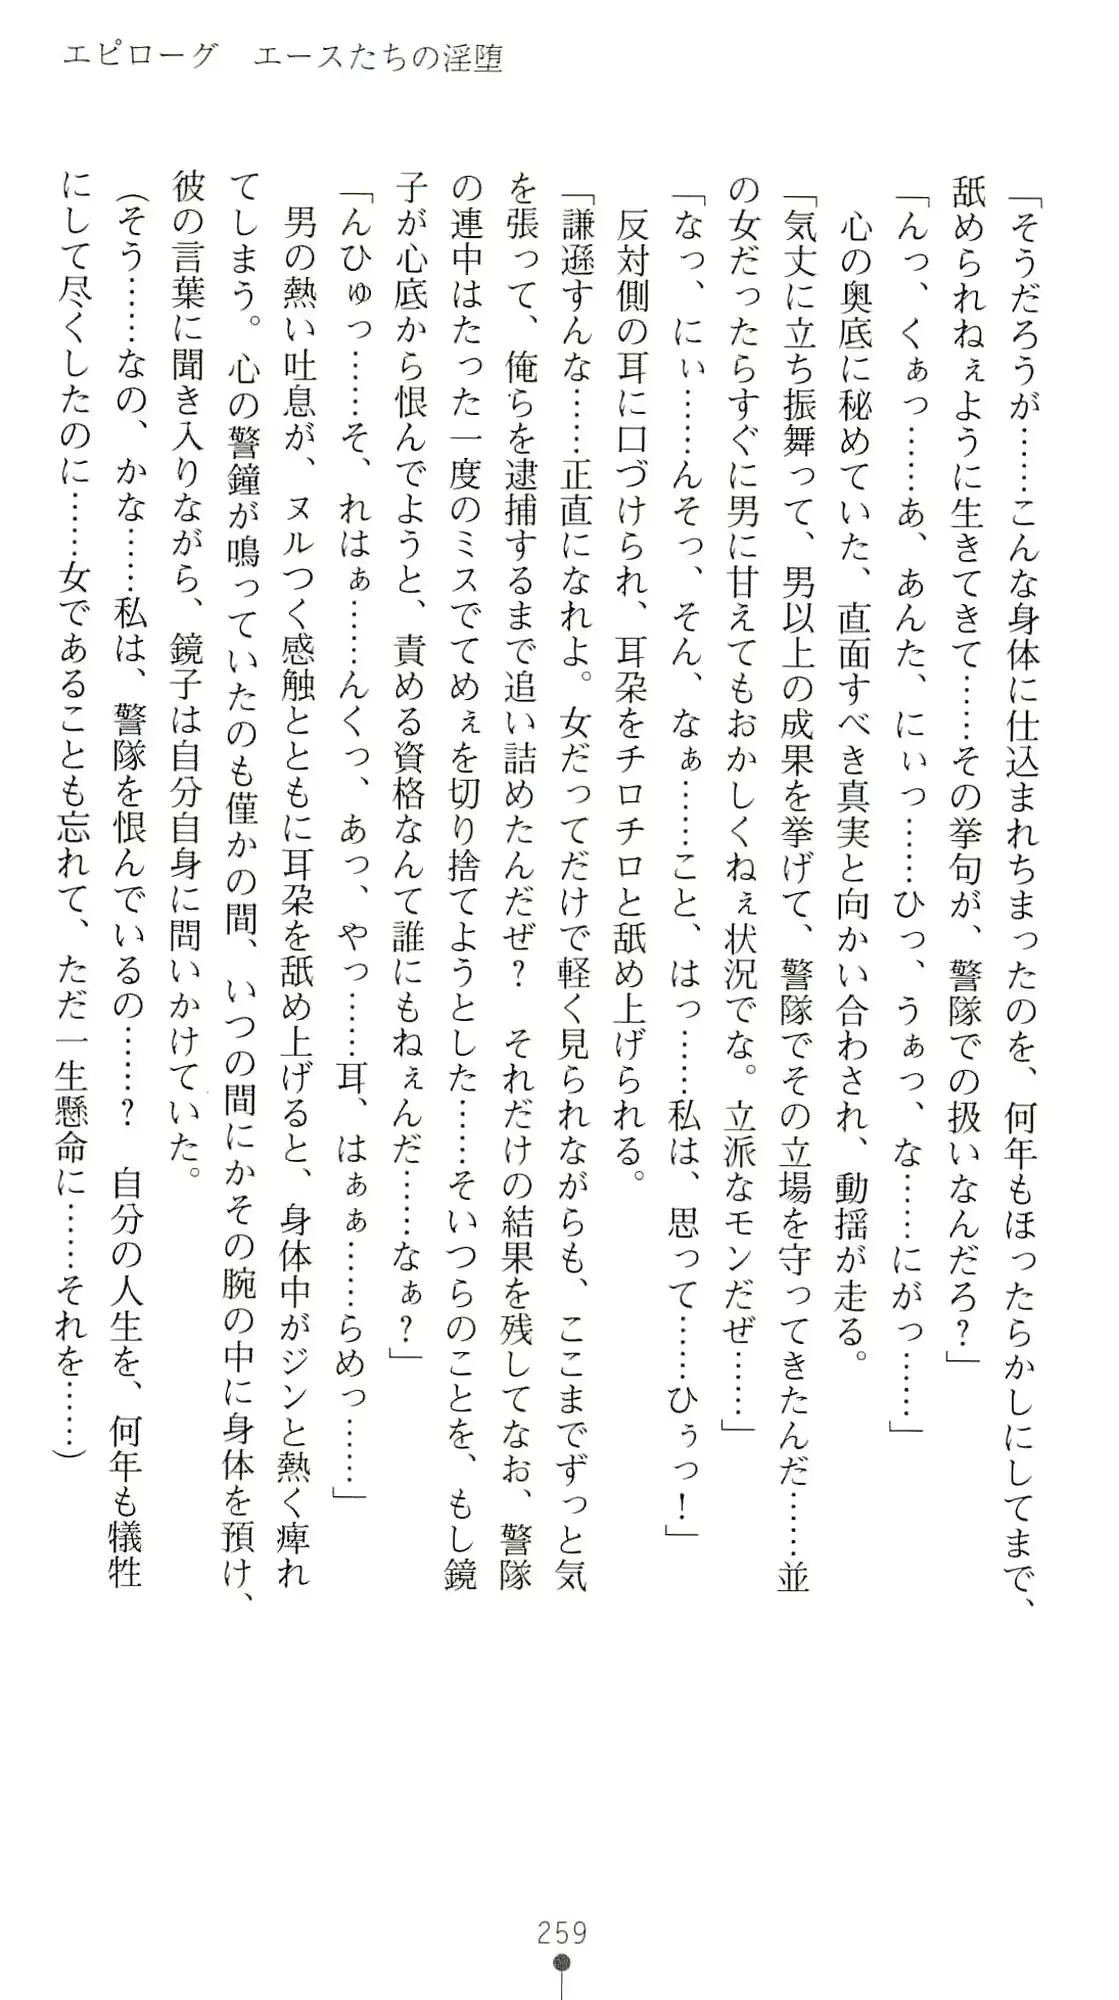 エピローグ　エースたちの淫堕
「そうだろうが……こんな身体に仕込まれちまったのを、何年もほったらかしにしてまで、
舐められねぇように生きてきて……その挙句が、警隊での扱いなんだろ？」
「んっ、くぁっ……あ、あんた、にぃっ……ひっ、うぁっ、な……にがっ……」
　心の奥底に秘めていた、直面すべき真実と向かい合わされ、動揺が走る。
「気丈に立ち振舞って、男以上の成果を挙げて、警隊でその立場を守ってきたんだ……並
の女だったらすぐに男に甘えてもおかしくねぇ状況でな。立派なモンだぜ……」
「なっ、にぃ……んそっ、そん、なぁ……こと、はっ……私は、思って……ひぅっ！」
　反対側の耳に口づけられ、耳朶をチロチロと舐め上げられる。
「謙遜すんな……正直になれよ。女だってだけで軽く見られながらも、ここまでずっと気
を張って、俺らを逮捕するまで追い詰めたんだぜ？　それだけの結果を残してなお、警隊
の連中はたった一度のミスでてめぇを切り捨てようとした……そいつらのことを、もし鏡
子が心底から恨んでようと、責める資格なんて誰にもねぇんだ……なぁ？」
「んひゅっ……そ、れはぁ……んくっ、あっ、やっ……耳、はぁぁ……らめっ……」
　男の熱い吐息が、ヌルつく感触とともに耳朶を舐め上げると、身体中がジンと熱く痺れ
てしまう。心の警鐘が鳴っていたのも僅かの間、いつの間にかその腕の中に身体を預け、
彼の言葉に聞き入りながら、鏡子は自分自身に問いかけていた。
（そう……なの、かな……私は、警隊を恨んでいるの……？　自分の人生を、何年も犠牲
にして尽くしたのに……女であることも忘れて、ただ一生懸命に……それを……）
259